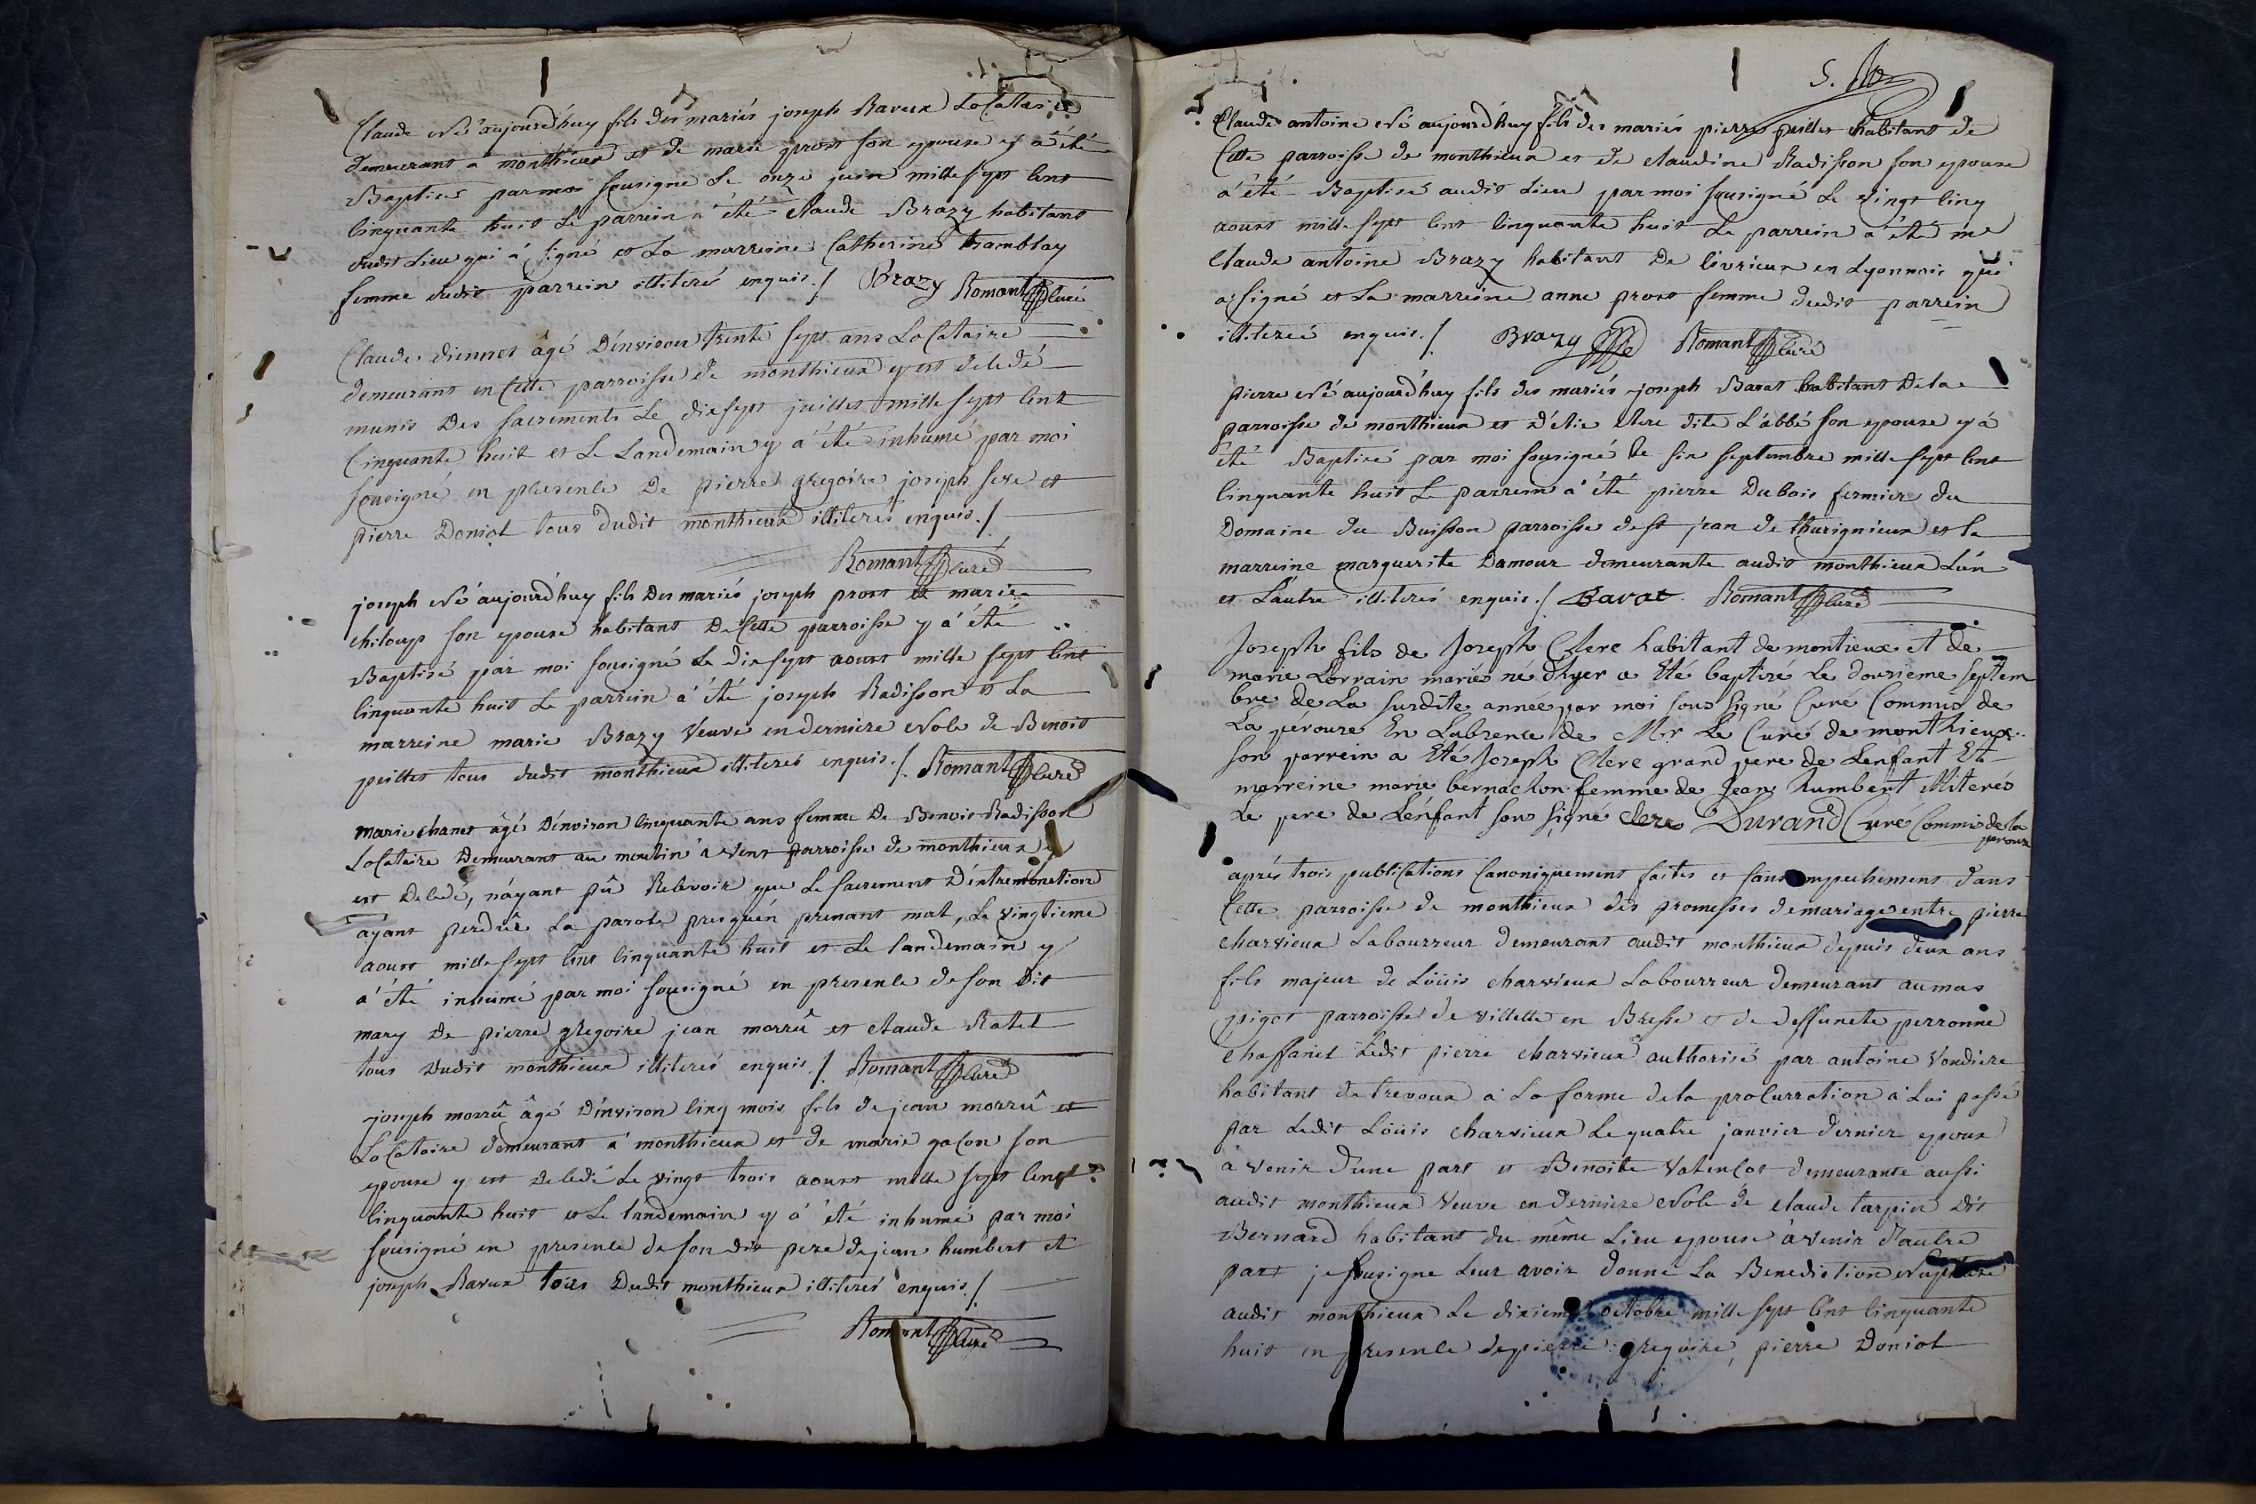 Claude né aujourd'huy fils des mariés joseph Ravux Locataire
demeurant a monthieux et de marie prost son epouse y a été
Baptisé par moi sousigné Le onze juin mille sept cent
cinquante huit Le parrein a été claude Brazy habitant
dudit Lieu qui à signé et La marreine Catherine tramblay
femme dudit parrein illiteré enquis ./ Brazy Romant Curé
Claude viennot âgé D'environ trente sept ans Locataire
demeurant en Cette parroisse de monthieux y est decedé
munis Des sacrements Le dix sept juillet mille sept cent
Cinquante huit et Le Landemain y a été inhumé par moi
sousigné en presence De pierre gregoire joseph sere et
pierre Doniol tous dudit monthieux illiterés enquis ./
Romant Curé
joseph né aujourd'huy fils Des mariés joseph prost et marie
chiloup son epouse habitant De Cette parroisse y a été
Baptisé par moi sousigné Le dix sept aoust mille sept cent
cinquante huit Le parrein a été joseph Radisson et La
marreine marie Brazy veuve en derniere nole de Benoit
peillet tous dudit monthieux illiterés enquis ./ Romant Curé
marie chanet âgé D'environ cinquante ans femme De Benoit Radisson
Locataire Demeurant au moulin à vent parroisse de monthieux y
est Decedé, n'ayant pû Recevoir que Le sacrement D'extremonction
ayant perdûe La parole presqu'en prenant mal, Le vingtieme
aoust mille sept cent cinquante huit et Le landemain y
a été inhumé par moi sousigné en presence de son dit
mary De pierre gregoire jean morrû et claude Ratet
tous Dudit monthieux illiterés enquis ./ Romant Curé
joseph morrû âgé D'environ cinq mois fils de jean morrû et
Locataire demeurant a monthieux et de marie gacon son
epouse y est decedé Le vingt trois aoust mille sept cent
cinquante huit et Le landemain y a été inhumé par moi
sousigné en presence de son dit pere de jean humbert et
joseph Ravux tous Dudit monthieux illiterés enquis ./
Romant Curé
5.
Claude antoine né aujourd'huy fils des mariés pierre peillet habitant de
Cette parroisse de monthieux et de claudine Radisson son epouse
a été Baptisé audit Lieu par moi sousigné Le vingt cinq
aoust mille sept cent cinquante huit Le parrein a été me
Claude antoine Brazy habitant De Civrieux en Lyonnois qui
a signé et La marreine anne prost femme dudit parrein
illiterée enquis ./ Brazy Romant Curé
pierre né aujourd'huy fils des mariés joseph Barat habitant De la
parroisse de monthieux et d'etie clere dite L'abbé son epouse y a
été Baptisé par moi sousigné Le six septembre mille sept cent
cinquante huit Le parrein a été pierre Dubois fermier du
Domaine du Buisson parroisse de st jean de thurignieux et La
marreine marguerite Damour demeurante audit monthieux L'un
et L'autre illiterés enquis ./ Barat Romant Curé
Joseph fils de Joseph Clere habitant de montieux et de
marie Lorrain mariés né d'hyer a Eté baptisé Le douzieme septem
bre de La susdite année par moi sous signé Curé Commis de
La perouze En Labsence de Mr Le Curé de monthieux
son parrein a Eté Joseph Clere grand pere de Lenfant Et
marreine marie bernachon femme de Jean humbert illiterés
Le pere de Lenfant sou signé clere Durand Curé Commis de la
perouze
aprés trois publications Canoniquement faites et sans empechement dans
Cette parroisse de monthieux des promesses de mariage entre pierre
charvieux Labourreur demeurant audit monthieux depuis deux ans
fils majeur de Loüis charvieux Labourreur demeurant au mas
pigot parroisse de villette en Bresse et de deffuncte perronne
chaffanel Ledit pierre charvieux authorisé par antoine vondiere
habitant de trevoux a La forme de la procurration a Lui passé
par Ledit Loüis charvieux Le quatre janvier dernier epoux
à venir d'une part et Benoite vatencot demeurante aussi
audit monthieux veuve en derniere nole de claude tarpin dit
Bernard habitant du même Lieu epouse àvenir d'autre
part je sousigne Leur avoir donné La Benediction nuptiale
audit monthieux Le dixieme octobre mille sept cent cinquante
huit en presence de pierre gregoire, pierre Doniol